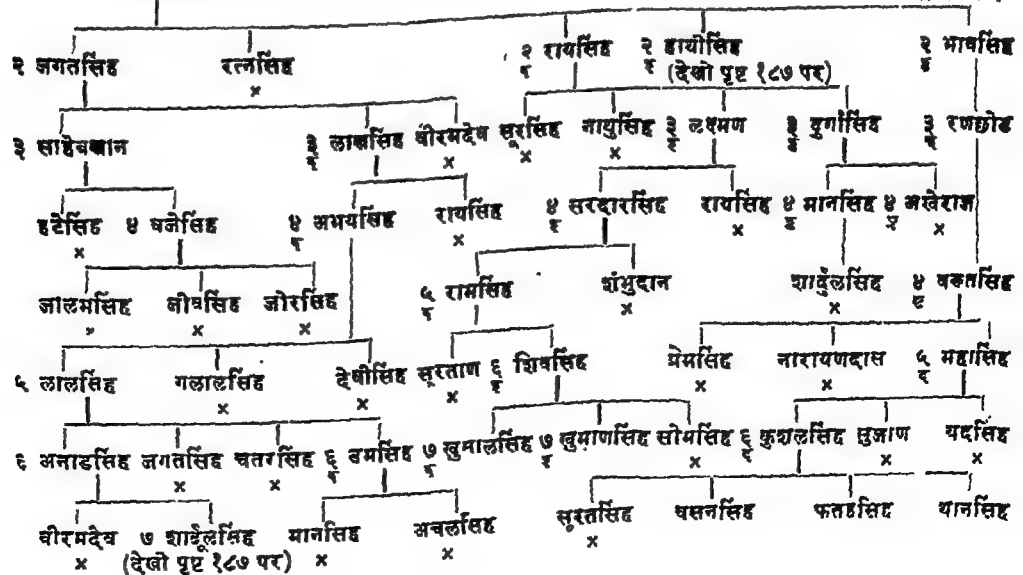 २ जगतसिंह रत्नसिंह २/१ रायसिंह २/२ हाथीसिंह २/३ भावसिंह
× (देखो पृष्ट १८७ पर)
३ साहेबखान ३/१ लाखसिंह वीरमदेव सूरसिंह नाथुसिंह ३/२ लक्ष्मण ३/३ दुर्गासिंह ३/४ रणछोड
× × ×
हटेसिंह ४ वजेसिंह ४/१ अभयसिंह रायसिंह ४/२ सरदारसिंह रायसिंह ४/३ मानसिंह ४/४ अखेराज
× × × ×
जालमसिंह जीवसिंह जोरसिंह ५/१ रामसिंह शंभुदान शार्दुलसिंह ४/५ वक्तसिंह
× × × × ×
५ लालसिंह गलालसिंह देवीसिंह सूरताण ६/२ शिवसिंह प्रेमसिंह नारायणदास ५/२ महासिंह
× × × × ×
६ अनाडसिंह जगतसिंह चतरसिंह ६/१ उमसिंह ७/१ खुमालसिंह ७/२ खुमाणसिंह सोमसिंह ६/३ कुशलसिंह सुजाण यदसिंह
× × × × ×
वीरमदेव ७ शार्दूलसिंह मानसिंह अचलसिंह सूरतसिंह वसनसिंह फतहसिंह थानसिंह
× (देखो पृष्ट १८७ पर) × × ×